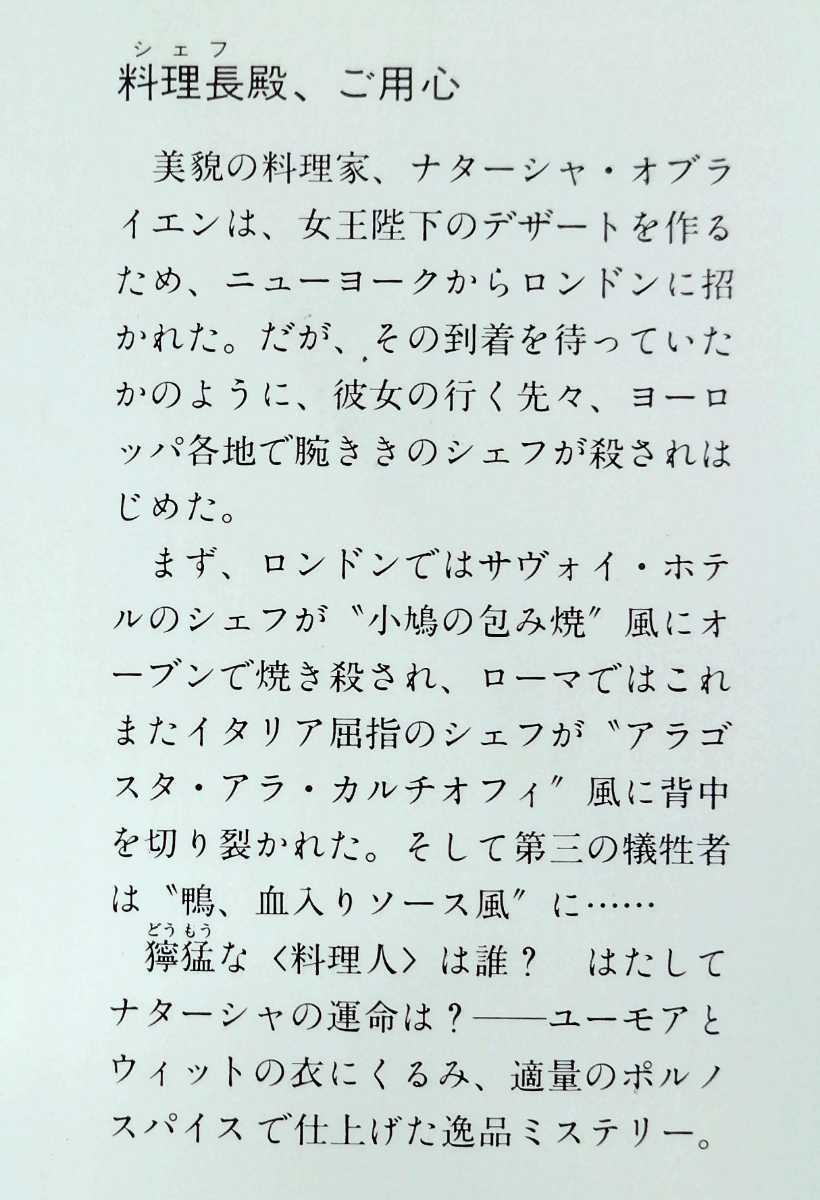 シェフ
料理長殿、ご用心
美貌の料理家、ナターシャ・オブラ
イエンは、女王陛下のデザートを作る
ため、ニューヨークからロンドンに招
かれた。だが、その到着を待っていた
かのように、彼女の行く先々、ヨーロ
ッパ各地で腕ききのシェフが殺されは
じめた。
まず、ロンドンではサヴォイ・ホテ
ルのシェフが〝小鳩の包み焼〟風にオ
ーブンで焼き殺され、ローマではこれ
またイタリア屈指のシェフが〝アラゴ
スタ・アラ・カルチオフィ〟風に背中
を切り裂かれた。そして第三の犠牲者
は〝鴨、血入りソース風〟に……
どうもう
獰猛な〈料理人〉は誰？　はたして
ナターシャの運命は？――ユーモアと
ウィットの衣にくるみ、適量のポルノ
スパイスで仕上げた逸品ミステリー。